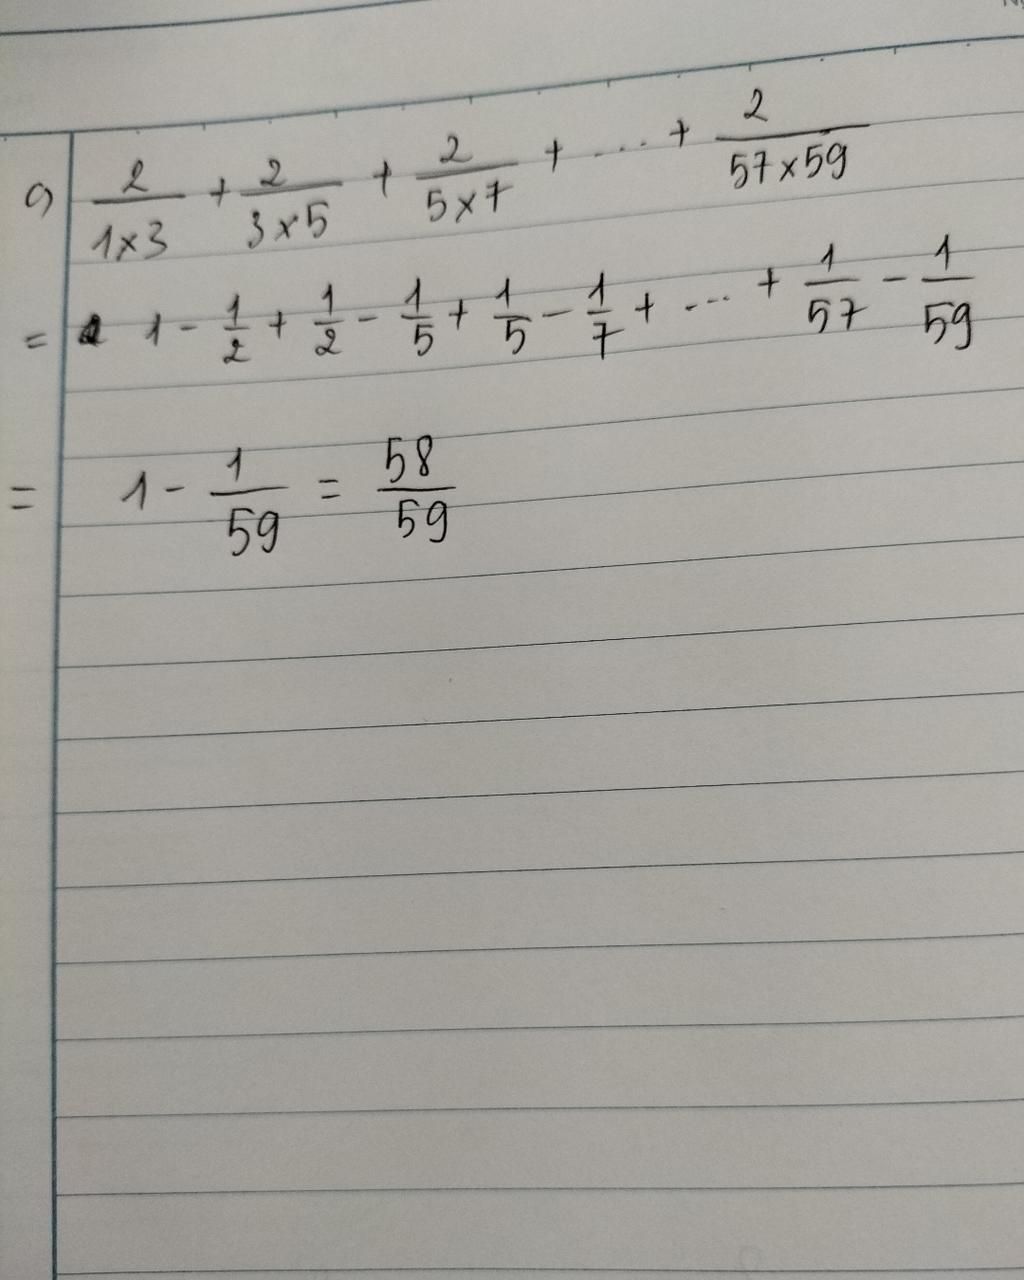 9) 2/(1×3) + 2/(3×5) + 2/(5×7) + ... + 2/(57×59)
= 1 - 1/2 + 1/2 - 1/5 + 1/5 - 1/7 + ... + 1/57 - 1/59
= 1 - 1/59 = 58/59